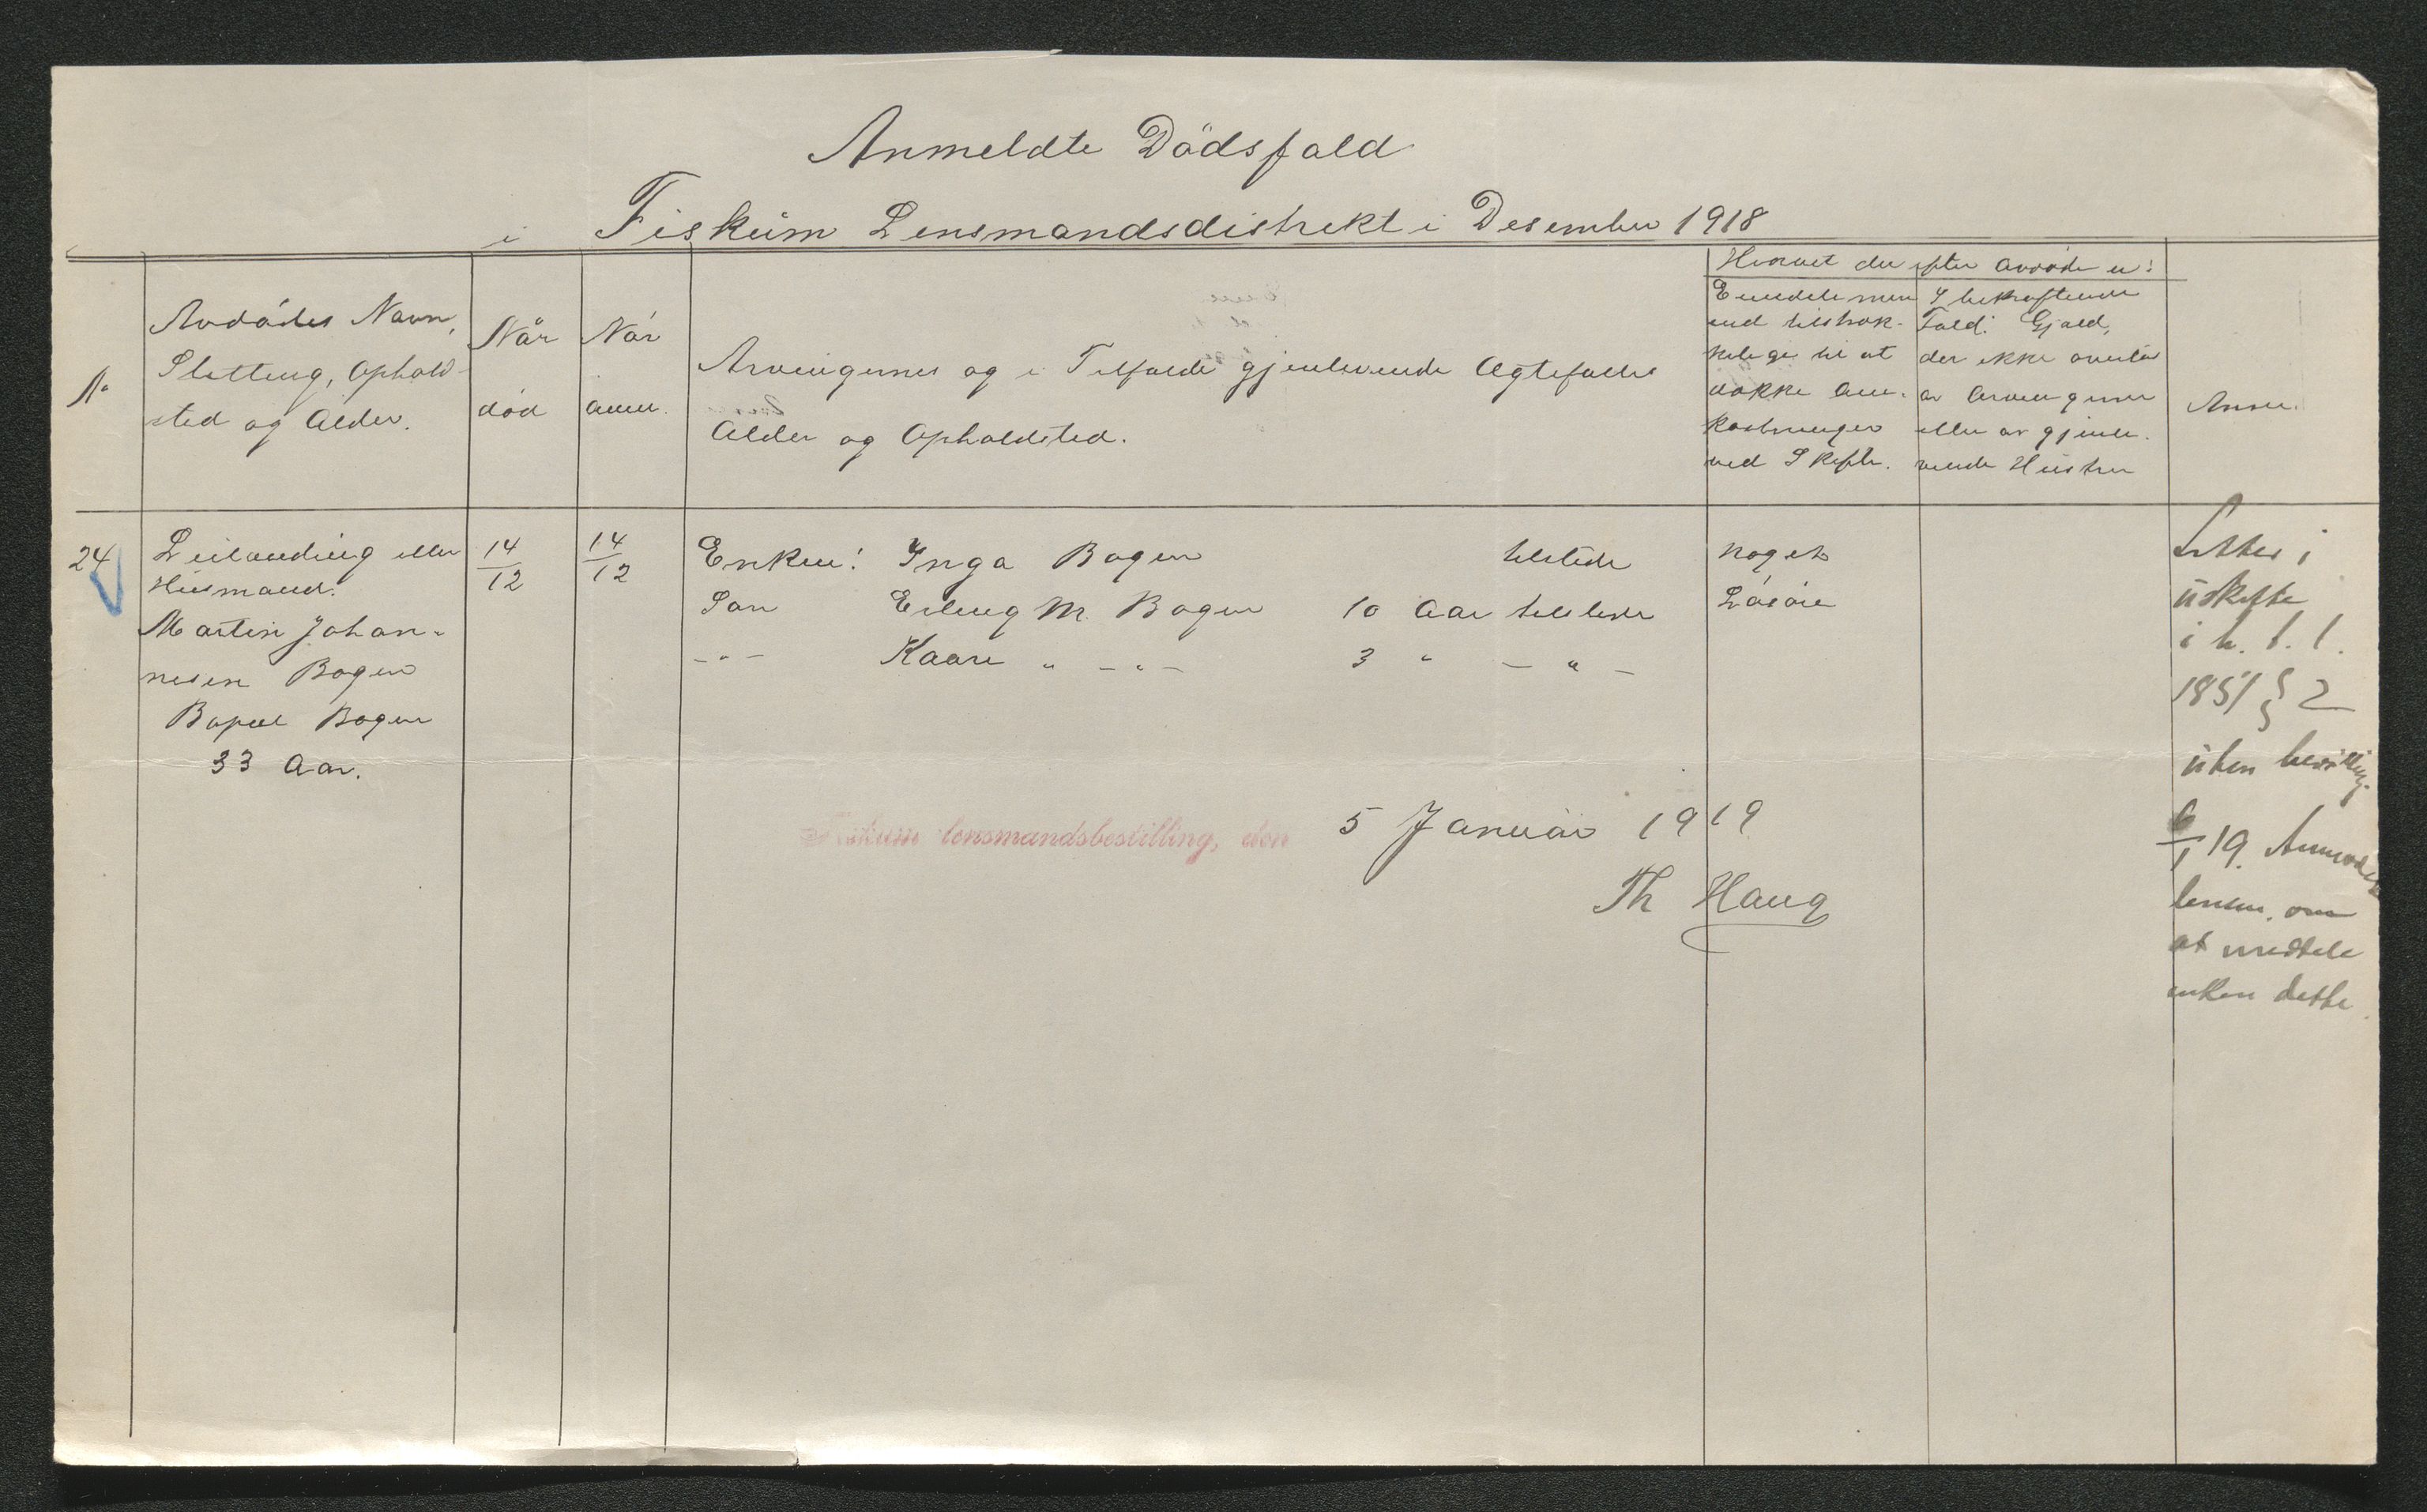 Anmeldte Dödsfald
i Fiskum Lensmandsdistrekt i Desember 1918
No
Avdødes Navn,
Stilling, Ophold-
sted og Alder.
Når
død
Når
anm.
Arvingernes og i Tilfælde gjenlevende Ægtefælles
Alder og Opholdsted.
Hvorvet der efter avdøde er:
Eiendele men
end tilstræk-
kelige til at
dække om-
kostninger
ved Skifte.
I bekræftende
Fald: Gjæld,
der ikke overtas
av Arvingerne
eller av gjenle-
vende Hustru
Anm.
24
Leilænding eller
Husmand.
Martin Johan-
nesen Bogen
Bopæl Bogen
33 Aar.
14/12
14/12
Enken: Inga Bogen tilstede
Søn Erling M. Bogen 10 Aar tilstede
-"- Kaare " -"- 3 " - " -
noget
Løsøre
Sitter i
uskifte
i h. t. l.
1851 § 2
uten bevilling.
6/1 19. Anmodet
lensm. om
at meddele
enken dette.
Fiskum lensmandsbestilling, den 5 Januar 1919
Th Haug